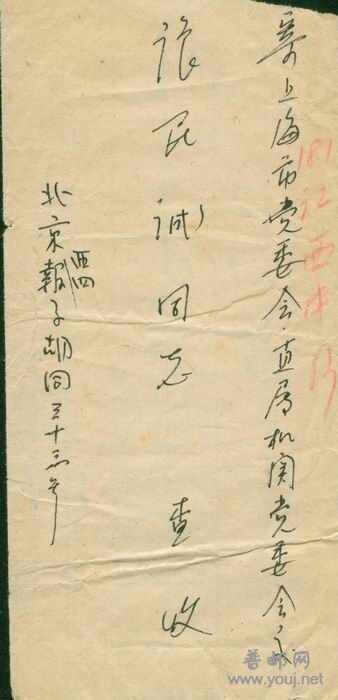 181 江西中路
寄上海市党委会·直属机关党委会交
张昆诚同志 查收
北京西四報子胡同三十三号
普邮网
www.youj.net